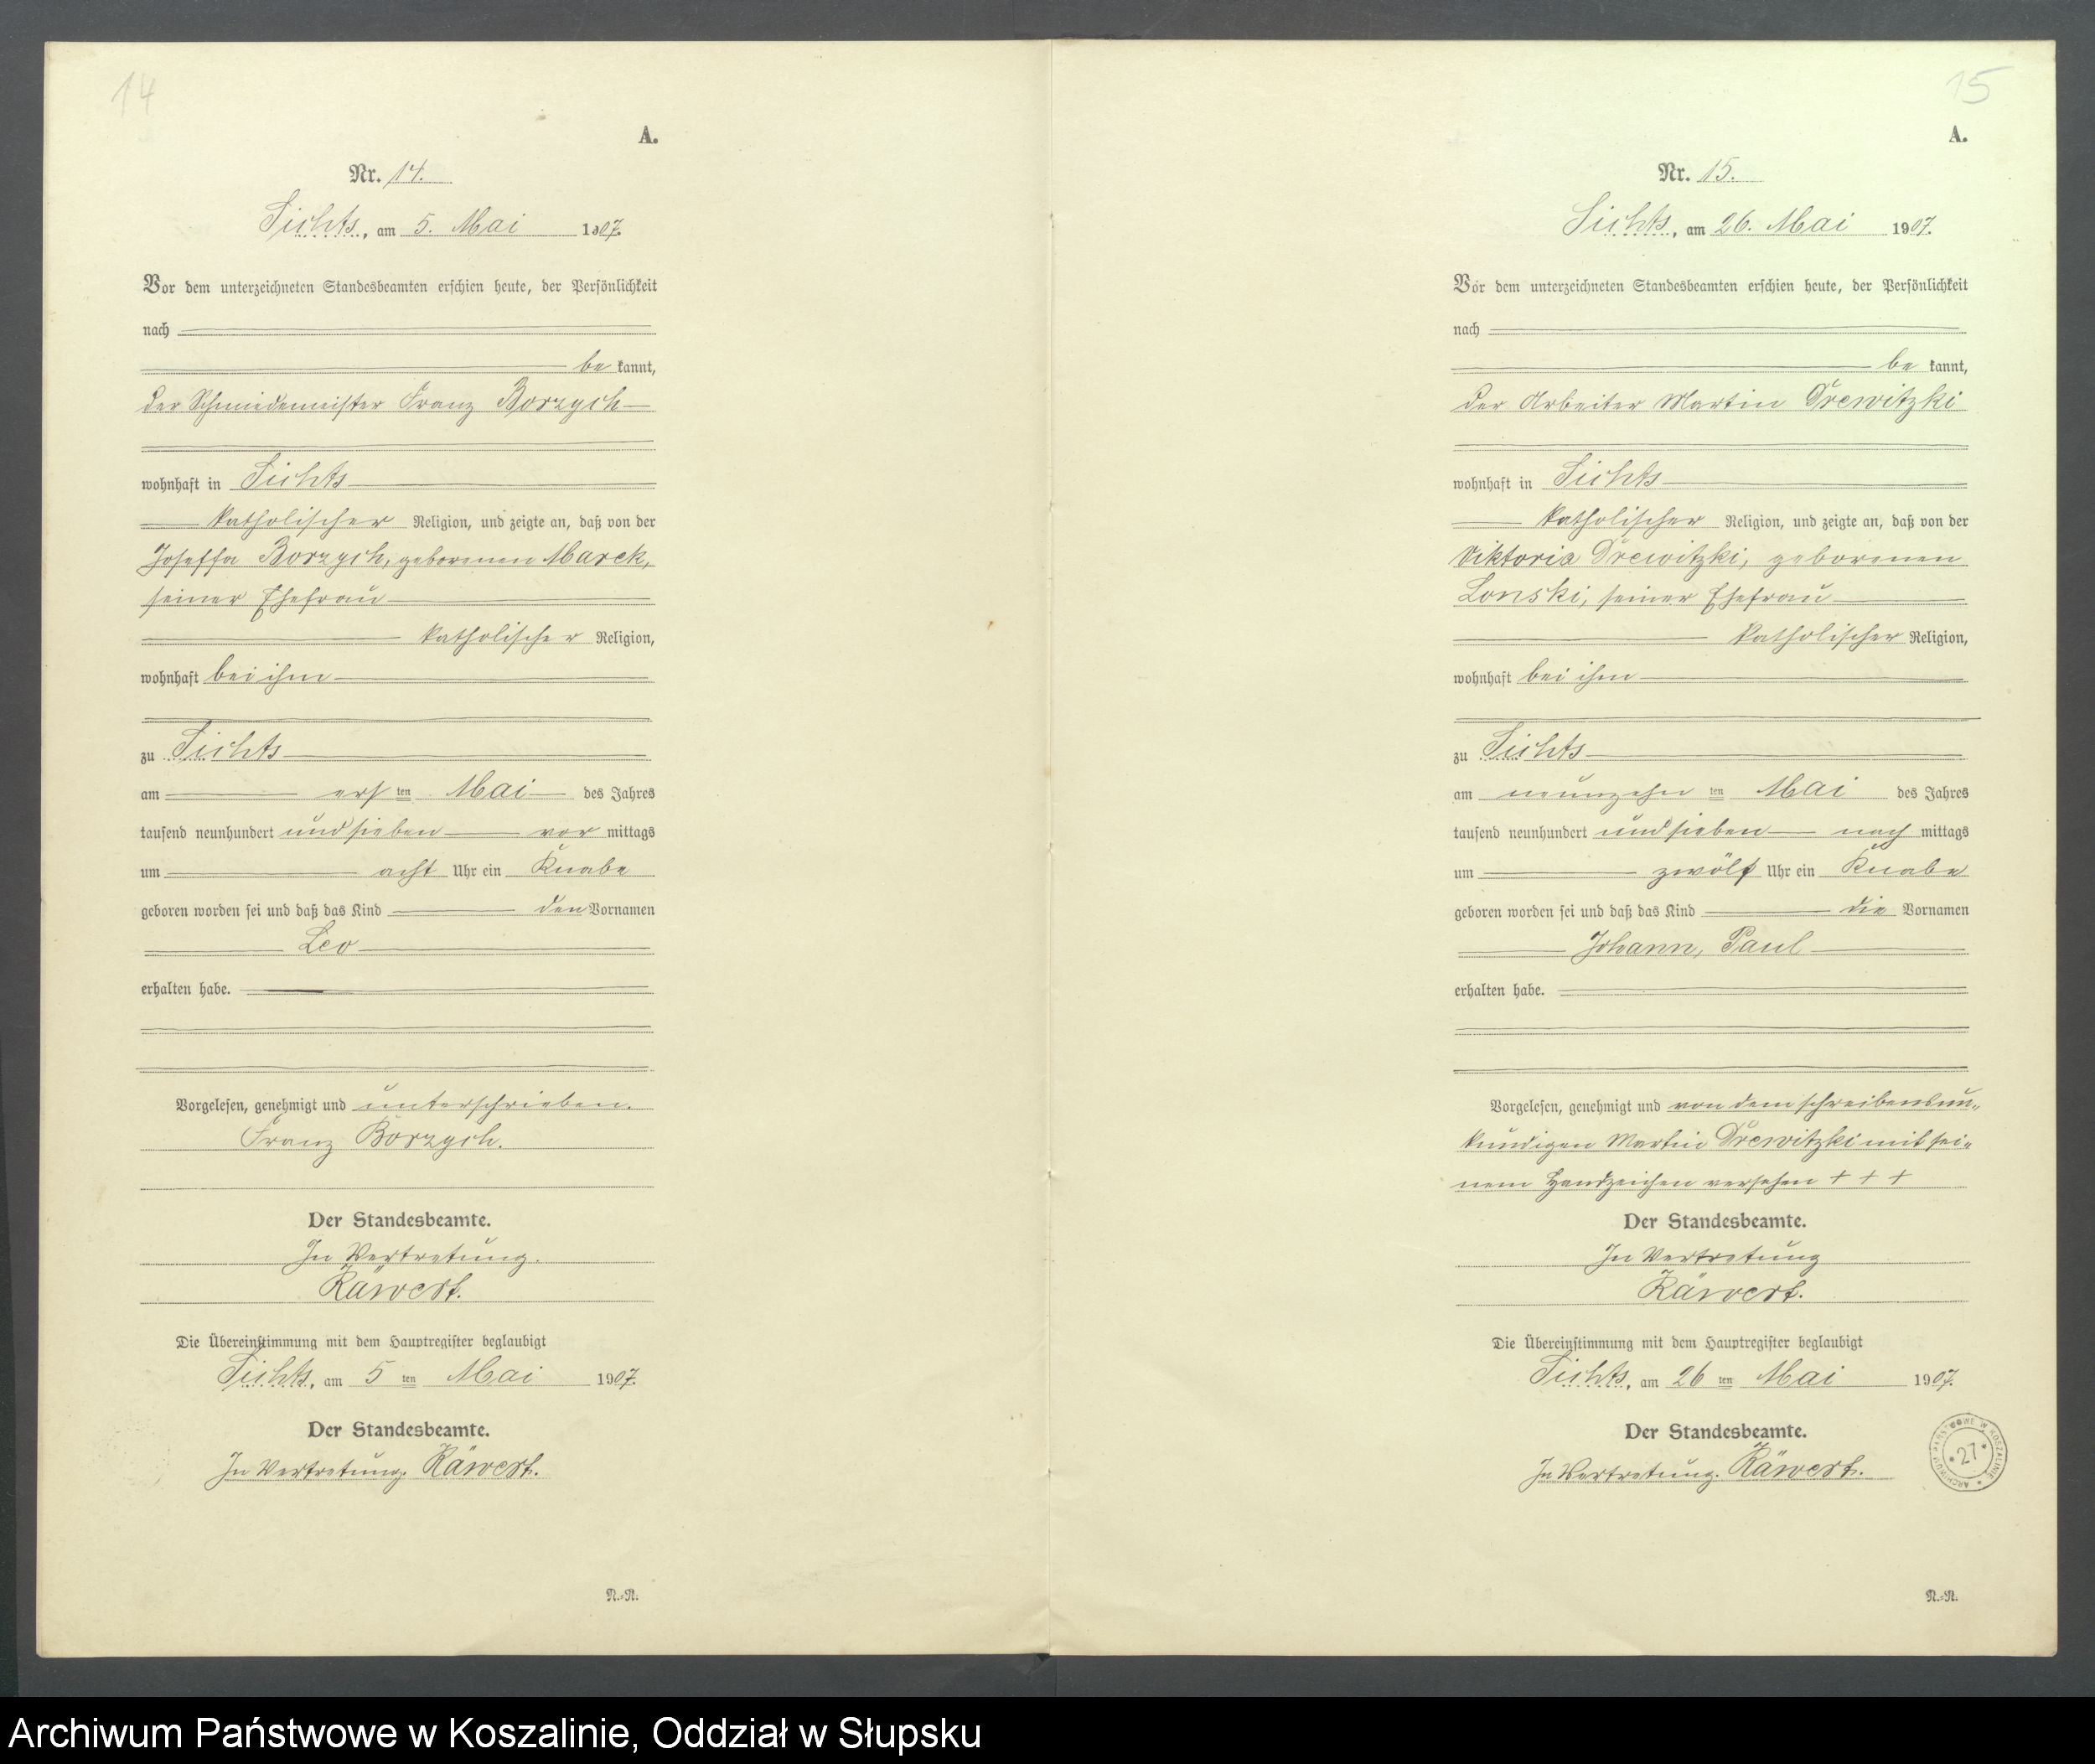 14
A.
Nr. 14.
Sichts, am 5. Mai 1907.
Vor dem unterzeichneten Standesbeamten erschien heute, der Persönlichkeit
nach
be kannt,
der Schmiedemeister Franz Borzych
wohnhaft in Sichts
katholischer Religion, und zeigte an, daß von der
Joseffa Borzych, geborenen Marek,
seiner Ehefrau
katholischer Religion,
wohnhaft bei ihm
zu Sichts
am ersten Mai des Jahres
tausend neunhundert und sieben vor mittags
um acht Uhr ein Knabe
geboren worden sei und daß das Kind den Vornamen
Leo
erhalten habe.
Vorgelesen, genehmigt und unterschrieben.
Franz Borzych.
Der Standesbeamte.
In Vertretung.
Räwert.
Die Übereinstimmung mit dem Hauptregister beglaubigt
Sichts, am 5 ten Mai 1907.
Der Standesbeamte.
In Vertretung. Räwert.
N.-N.
15
A.
Nr. 15.
Sichts, am 26. Mai 1907.
Vor dem unterzeichneten Standesbeamten erschien heute, der Persönlichkeit
nach
be kannt,
der Arbeiter Martin Drewitzki
wohnhaft in Sichts
katholischer Religion, und zeigte an, daß von der
Viktoria Drewitzki, geborenen
Lonski, seiner Ehefrau
katholischer Religion,
wohnhaft bei ihm
zu Sichts
am neunzehn ten Mai des Jahres
tausend neunhundert und sieben nach mittags
um zwölf Uhr ein Knabe
geboren worden sei und daß das Kind die Vornamen
Johann, Paul
erhalten habe.
Vorgelesen, genehmigt und von dem schreibensun„
kundigen Martin Drewitzki mit sei„
nem Handzeichen versehen + + +
Der Standesbeamte.
In Vertretung
Räwert.
Die Übereinstimmung mit dem Hauptregister beglaubigt
Sichts, am 26 ten Mai 1907.
Der Standesbeamte.
In Vertretung. Räwert.
ARCHIWUM PAŃSTWOWE W KOSZALINIE * 27 *
N.-N.
Archiwum Państwowe w Koszalinie, Oddział w Słupsku